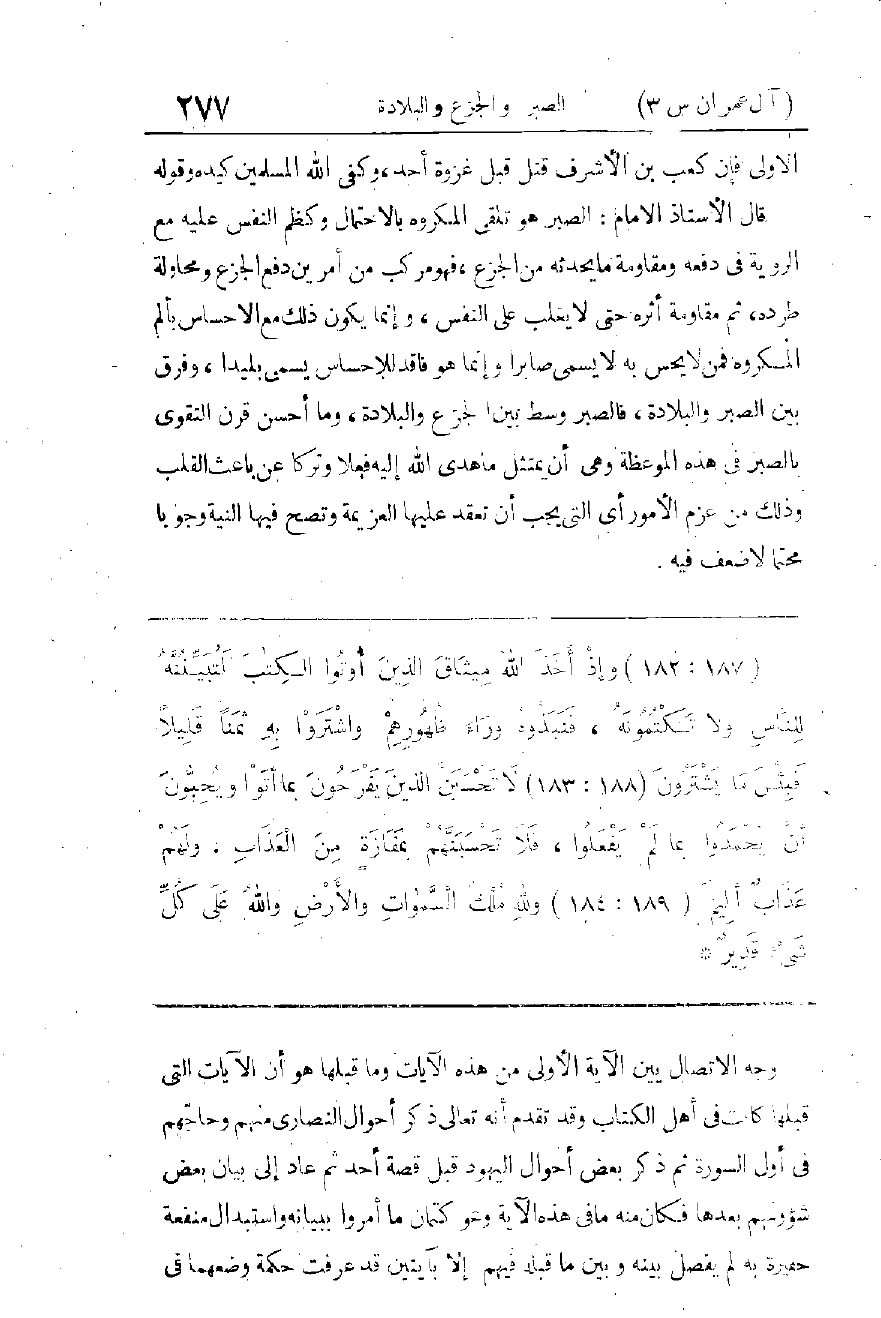 (آل عمران س ٣) الصبر والجزع والبلادة ٢٧٧
الاولى فإن كعب بن الأشرف قتل قبل غزوة أحد، وكفى الله المسلمين كيده وقوله
قال الأستاذ الامام : الصبر هو تلقى المكروه بالاحتمال وكظم النفس عليه مع
الروية فى دفعه ومقاومة ما يحدثه من الجزع ، فهو مركب من أمرين دفع الجزع ومحاولة
طرده، ثم مقاومة أثره حتى لا يغلب على النفس ، وإنما يكون ذلك مع الاحساس بألم
المكروه فمن لا يحس به لا يسمى صابرا وإنما هو فاقد للإحساس يسمى بليدا ، وفرق
بين الصبر والبلادة ، فالصبر وسط بين الجزع والبلادة ، وما أحسن قرن التقوى
بالصبر فى هذه الموعظة وهى أن يمتثل ما هدى الله إليه فعلا وتركا عن باعث القلب
وذلك من عزم الأمور أي التى يجب أن تعقد عليها العزيمة وتصح فيها النية وجوبا
محتما لا ضعف فيه .
(١٨٧ : ١٨٢) وإذْ أَخَذَ اللهُ مِيثَاقَ الذِينَ أُوتُوا الْكِتٰبَ لَتُبَيِّنُنَّهُ
لِلنَّاسِ ولا تَكْتُمُونَهُ ، فَنَبَذُوهُ ورَاءَ ظُهُورِهِمْ واشْتَرَوْا بِهِ ثَمَنًا قَلِيلاً
فَبِئْسَ مَا يَشْتَرُونَ (١٨٨ : ١٨٣) لَا تَحْسَبَنَّ الذِينَ يَفْرَحُونَ بِمَا أَتَوْا ويُحِبُّونَ
أَنْ يُحْمَدُوا بِمَا لَمْ يَفْعَلُوا ، فَلَا تَحْسَبَنَّهُمْ بِمَفَازَةٍ مِنَ الْعَذَابِ ، ولَهُمْ
عَذَابٌ أَلِيمٌ (١٨٩ : ١٨٤) وللهِ مُلْكُ السَّمٰوَاتِ والأَرْضِ واللهُ عَلَى كُلِّ
شَىْءٍ قَدِيرٌ *
وجه الاتصال بين الآية الأولى من هذه الآيات وما قبلها هو أن الآيات التى
قبلها كانت فى أهل الكتاب وقد تقدم أنه تعالى ذكر أحوال النصارى منهم وحاجهم
فى أول السورة ثم ذكر بعض أحوال اليهود قبل قصة أحد ثم عاد إلى بيان بعض
شؤونهم بعدها فكان منه مافى هذه الآية وهو كتمان ما أمروا ببيانه واستبدال منفعة
حقيرة به لم يفصل بينه وبين ما قبله فيهم إلا بآيتين قد عرفت حكمة وضعهما فى